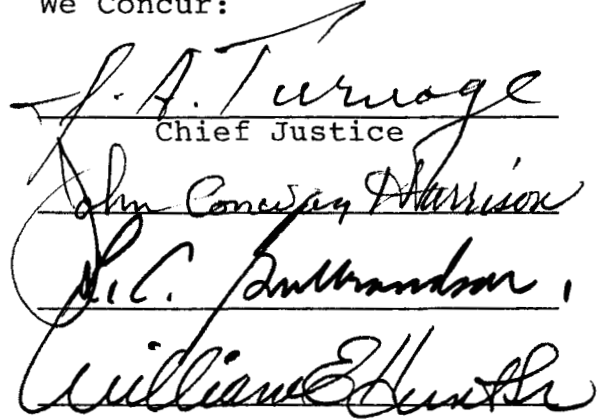 We Concur:
J. A. Turnage
Chief Justice
John Conway Harrison
L. C. Gulbrandson
William E. Hunt Sr